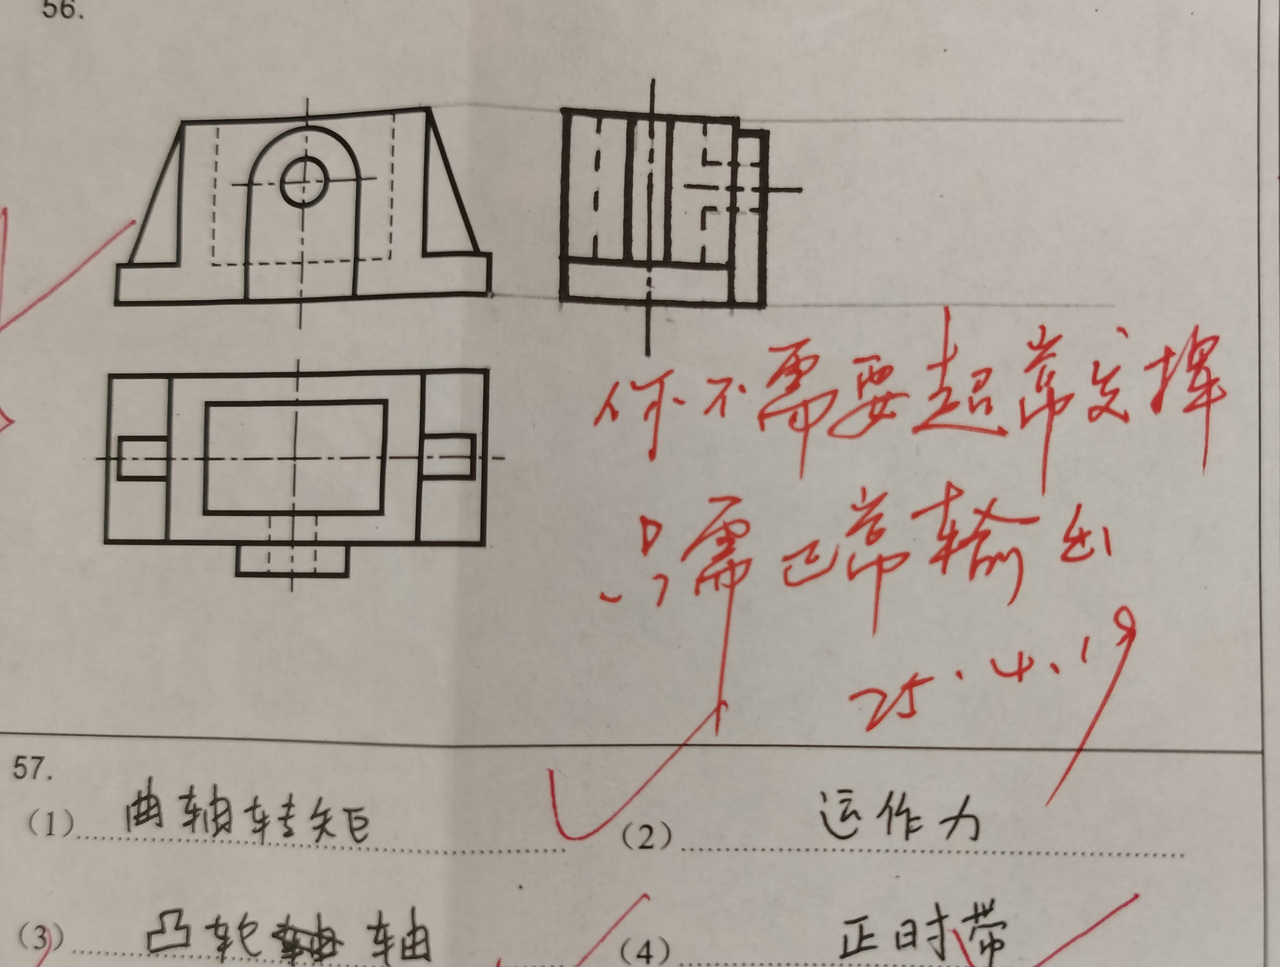 56.
你不需要超常发挥
只需正常输出
25.4.19
57.
(1) 曲轴转矩 (2) 运作力
(3) 凸轮轴 (4) 正时带